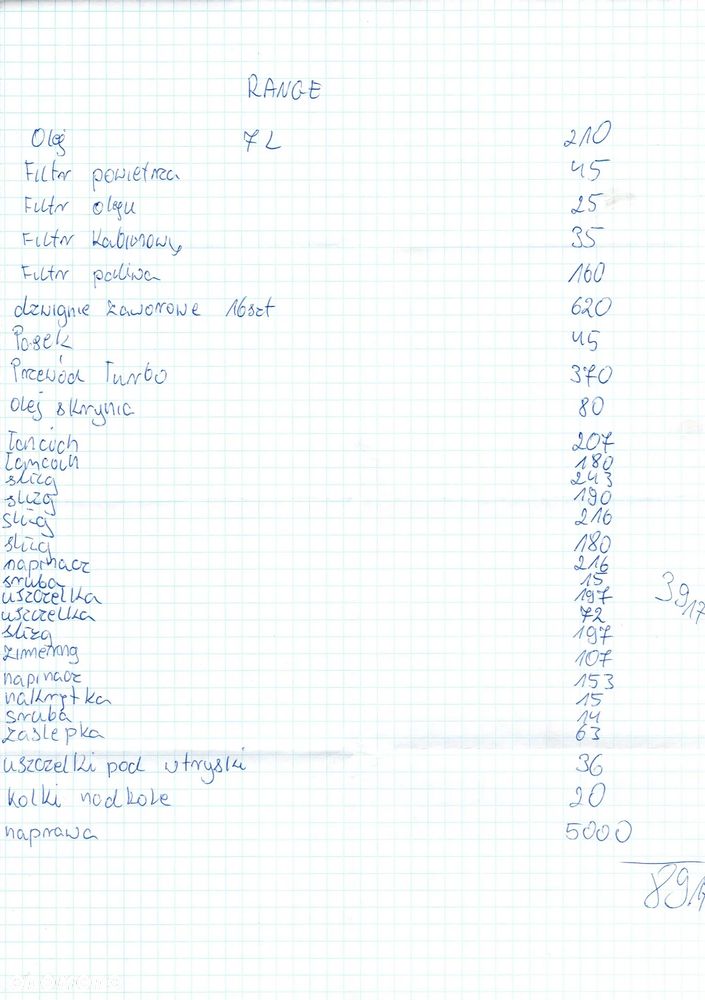 RANGE
Olej 7L 210
Filtr powietrza 45
Filtr oleju 25
Filtr kabinowy 35
Filtr paliwa 160
dzwignie zaworowe 16szt 620
Pasek 45
Przewód Turbo 370
Olej skrzynia 80
Łańcuch 207
Łańcuch 180
slizg 243
slizg 190
slizg 216
slizg 180
napinacz 216
sruba 15
uszczelka 197
uszczelka 72
3917
slizg 197
zimering 107
napinacz 153
nakrętka 15
sruba 14
zaslepka 63
uszczelki pod wtryski 36
kołki nadkole 20
naprawa 5000